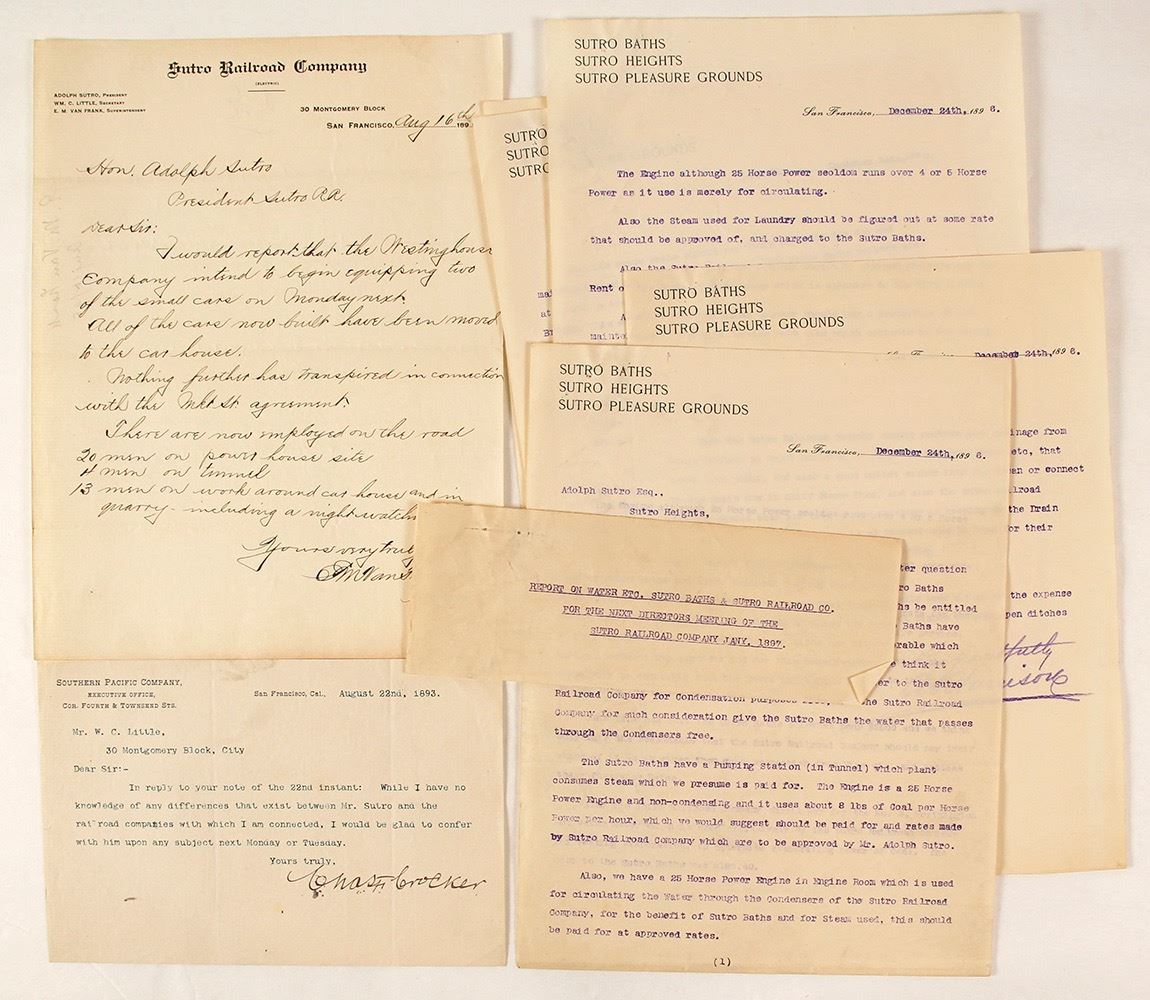 Sutro Railroad Company
(ELECTRIC)
ADOLPH SUTRO, PRESIDENT
WM. C. LITTLE, SECRETARY
E. M. VAN FRANK, SUPERINTENDENT
30 MONTGOMERY BLOCK
SAN FRANCISCO, Aug 16th 189
Hon. Adolph Sutro
President Sutro RR.
Dear Sir:
I would report that the Westinghouse
Company intend to begin equipping two
of the small cars on Monday next.
All of the cars now built have been moved
to the car house.
Nothing further has transpired in connection
with the Mkt St agreement.
There are now employed on the road
20 men on power house site
4 men on tunnel
13 men on work around car house and in
quarry - including a night watch
Yours very truly
SOUTHERN PACIFIC COMPANY,
EXECUTIVE OFFICE,
COR. FOURTH & TOWNSEND STS.
San Francisco, Cal., August 22nd, 1893.
Mr. W. C. Little,
30 Montgomery Block, City
Dear Sir:-
In reply to your note of the 22nd instant: While I have no
knowledge of any differences that exist between Mr. Sutro and the
railroad companies with which I am connected, I would be glad to confer
with him upon any subject next Monday or Tuesday.
Yours truly,
Chas F Crocker
SUTRO
SUTRO
SUTRO
at
SUTRO BATHS
SUTRO HEIGHTS
SUTRO PLEASURE GROUNDS
San Francisco, December 24th, 1896.
The Engine although 25 Horse Power seoldom runs over 4 or 5 Horse
Power as it use is merely for circulating.
Also the Steam used for Laundry should be figured out at some rate
that should be approved of, and charged to the Sutro Baths.
Also the Sutro
Rent
SUTRO BATHS
SUTRO HEIGHTS
SUTRO PLEASURE GROUNDS
December 24th, 1896.
inage from
etc, that
an or connect
lroad
the Drain
or their
the expense
pen ditches
SUTRO BATHS
SUTRO HEIGHTS
SUTRO PLEASURE GROUNDS
San Francisco, December 24th, 1896.
Adolph Sutro Esq.,
Sutro Heights,
ter question
ro Baths
hs be entitled
Baths have
rable which
e think it
er to the Sutro
Railroad Company for Condensation purposes he Sutro Railroad
Company for such consideration give the Sutro Baths the water that passes
through the Condensers free.
The Sutro Baths have a Pumping Station (in Tunnel) which plant
consumes Steam which we presume is paid for. The Engine is a 25 Horse
Power Engine and non-condensing and it uses about 8 lbs of Coal per Horse
Power per hour, which we would suggest should be paid for and rates made
by Sutro Railroad Company which are to be approved by Mr. Adolph Sutro.
Also, we have a 25 Horse Power Engine in Engine Room which is used
for circulating the Water through the Condensers of the Sutro Railroad
Company, for the benefit of Sutro Baths and for Steam used, this should
be paid for at approved rates.
(1)
REPORT ON WATER ETC. SUTRO BATHS & SUTRO RAILROAD CO.
FOR THE NEXT DIRECTORS MEETING OF THE
SUTRO RAILROAD COMPANY JANY. 1897.